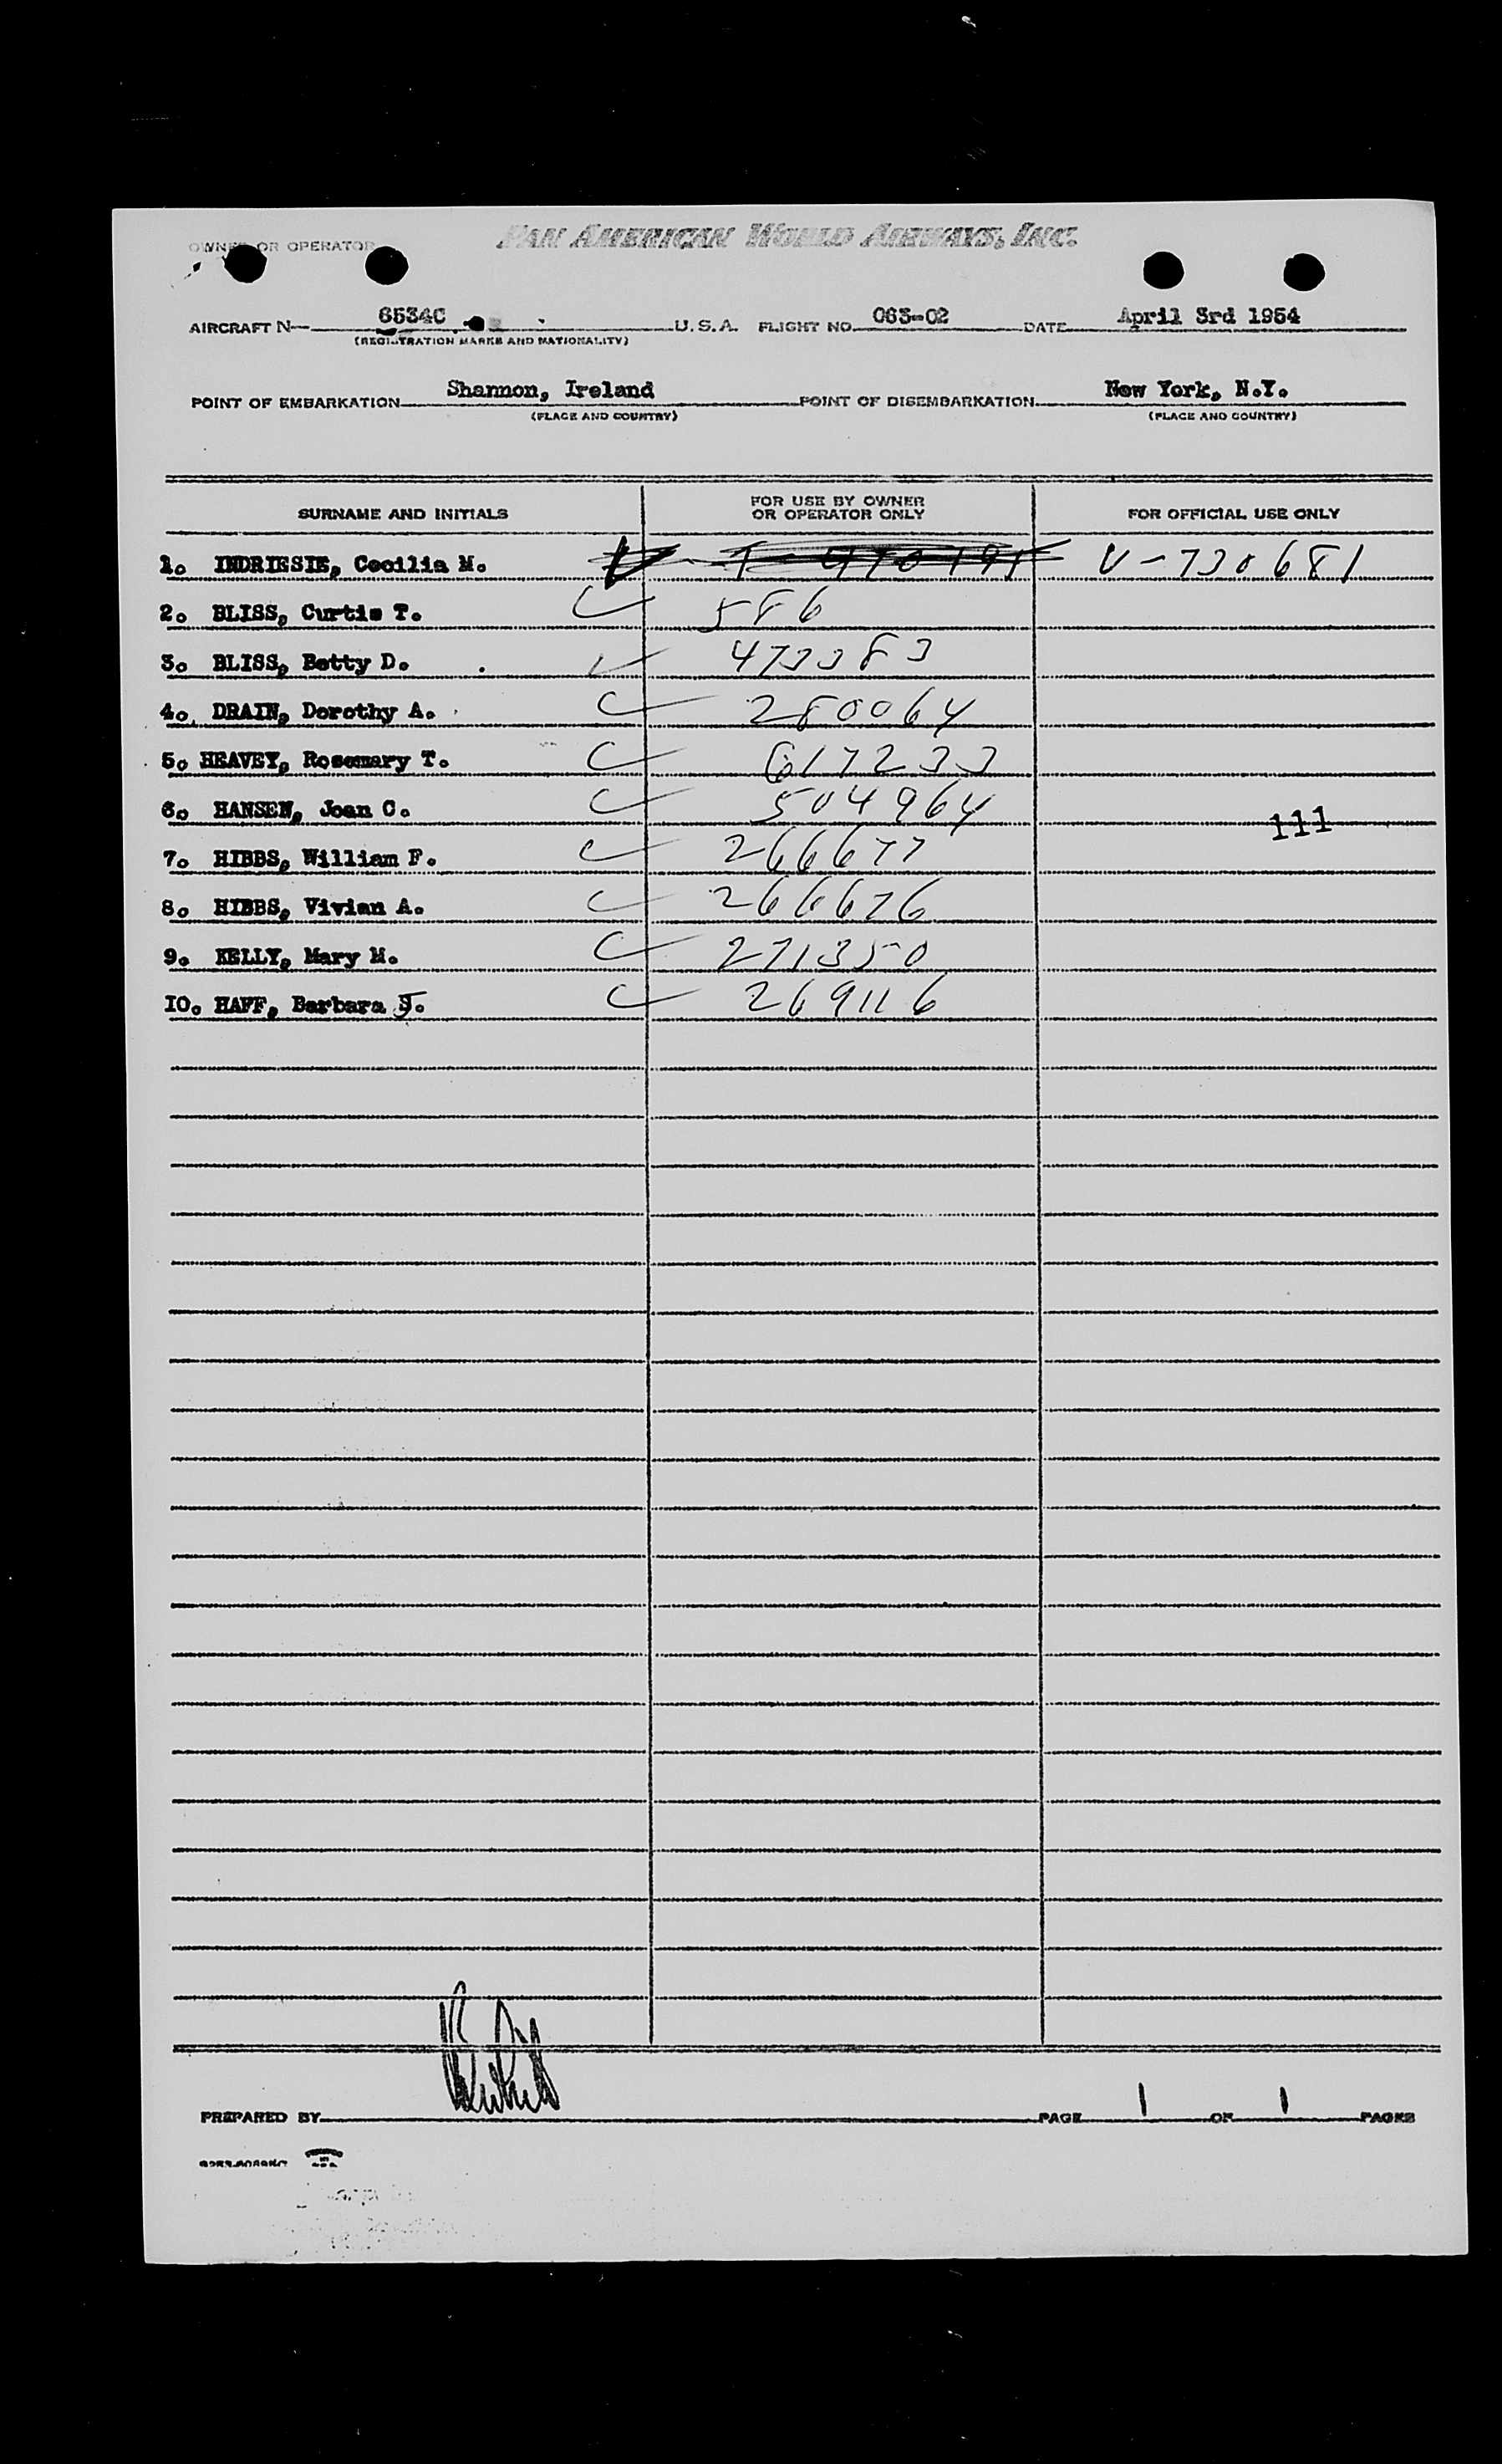 OWNER OR OPERATOR PAN AMERICAN WORLD AIRWAYS, INC.
AIRCRAFT N- 6534C U.S.A. FLIGHT NO. 063-02 DATE April 3rd 1954
(REGISTRATION MARKS AND NATIONALITY)
POINT OF EMBARKATION Shannon, Ireland POINT OF DISEMBARKATION New York, N.Y.
(PLACE AND COUNTRY) (PLACE AND COUNTRY)
SURNAME AND INITIALS FOR USE BY OWNER OR OPERATOR ONLY FOR OFFICIAL USE ONLY
1. INDRIESIE, Cecilia M. V-730681
2. BLISS, Curtis T. 586
3. BLISS, Betty D. 473383
4. DRAIN, Dorothy A. 280064
5. HEAVEY, Rosemary T. 617233
6. HANSEN, Joan C. 504964
111
7. HIBBS, William F. 266677
8. HIBBS, Vivian A. 266676
9. KELLY, Mary M. 271350
10. HAFF, Barbara J. 269116
PREPARED BY PAGE 1 OF 1 PAGES